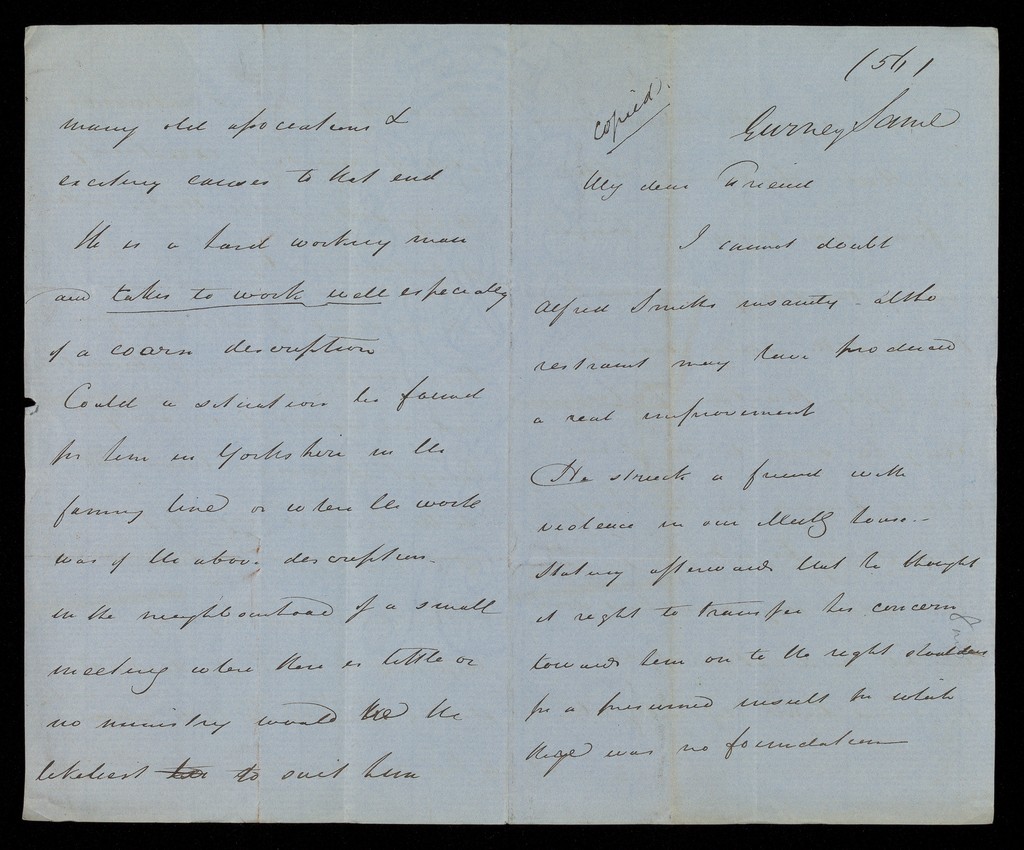 (511
copied.
Gurney Saml
My dear Friend
I cannot doubt
Alfred Smiths insanity - altho
restraint may have produced
a real improvement
He struck a friend with
violence in our Meetg house -
Stating afterwards that he thought
it right to transfer his concern
towards him on to the right shoulders
for a presumed insult for which
there was no foundation
many old associations &
exciting causes to that end
He is a hard working man
and takes to work well especially
of a coarse description
Could a situation be found
for him in Yorkshire in the
farming line or where the work
was of the above description -
in the neighbourhood of a small
meeting where there is little or
no ministry would be the
likeliest to suit him